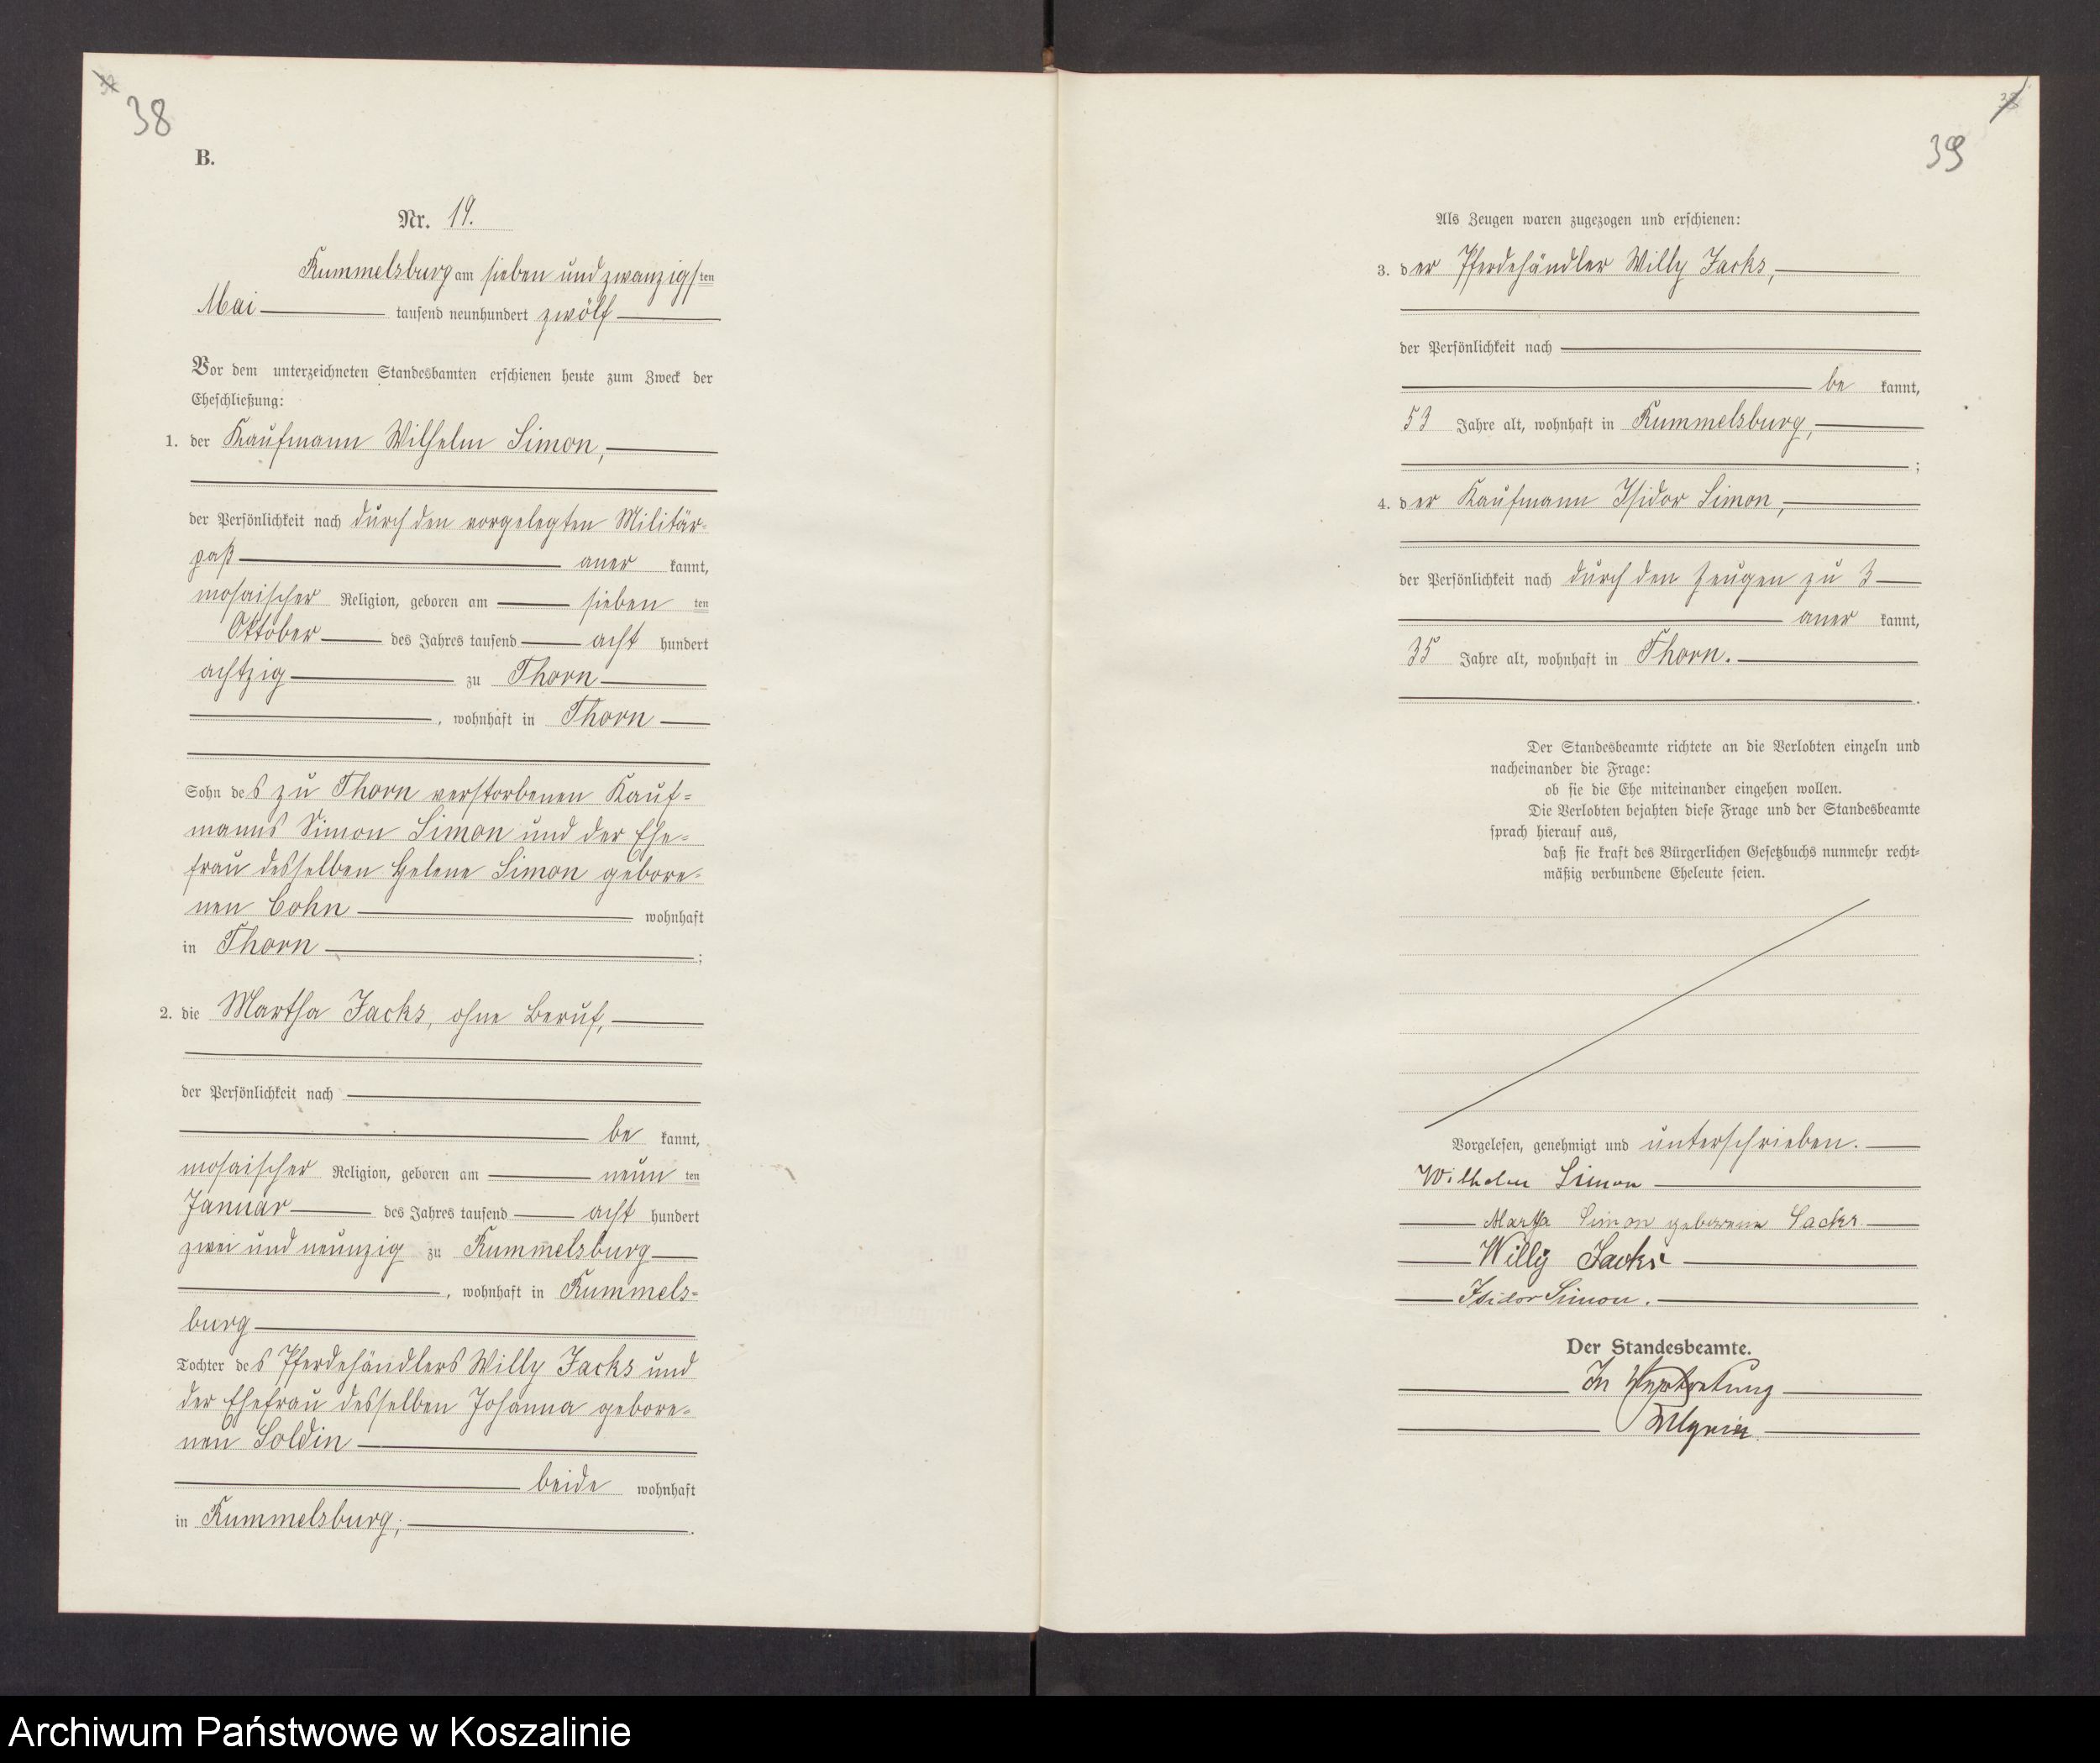 38
B.
Nr. 19.
Rummelsburg am sieben und zwanzigsten
Mai tausend neunhundert zwölf
Vor dem unterzeichneten Standesbamten erschienen heute zum Zweck der
Eheschließung:
1. der Kaufmann Wilhelm Simon,
der Persönlichkeit nach durch den vorgelegten Militär-
paß aner kannt,
mosaischer Religion, geboren am sieben ten
Oktober des Jahres tausend acht hundert
achtzig zu Thorn
, wohnhaft in Thorn
Sohn des zu Thorn verstorbenen Kauf-
manns Simon Simon und der Ehe-
frau desselben Helene Simon gebore-
nen Cohn wohnhaft
in Thorn ;
2. die Martha Jacks, ohne Beruf,
der Persönlichkeit nach
be kannt,
mosaischer Religion, geboren am neun ten
Januar des Jahres tausend acht hundert
zwei und neunzig zu Rummelsburg
, wohnhaft in Rummels-
burg
Tochter des Pferdehändlers Willy Jacks und
der Ehefrau desselben Johanna gebore-
nen Soldin
beide wohnhaft
in Rummelsburg; .
39
Als Zeugen waren zugezogen und erschienen:
3. der Pferdehändler Willy Jacks,
der Persönlichkeit nach
be kannt,
53 Jahre alt, wohnhaft in Rummelsburg,
;
4. der Kaufmann Isidor Simon,
der Persönlichkeit nach durch den Zeugen zu 3
aner kannt,
35 Jahre alt, wohnhaft in Thorn.
.
Der Standesbeamte richtete an die Verlobten einzeln und
nacheinander die Frage:
ob sie die Ehe miteinander eingehen wollen.
Die Verlobten bejahten diese Frage und der Standesbeamte
sprach hierauf aus,
daß sie kraft des Bürgerlichen Gesetzbuchs nunmehr recht-
mäßig verbundene Eheleute seien.
Vorgelesen, genehmigt und unterschrieben.
Wilhelm Simon
Martha Simon geborene Jacks.
Willy Jacks
Isidor Simon.
Der Standesbeamte.
In Vertretung
Archiwum Państwowe w Koszalinie